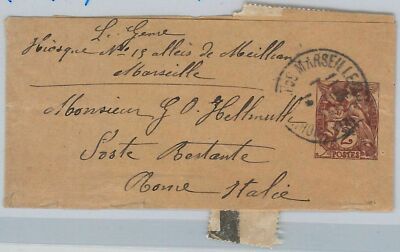 L. Gene
Kiosque No 15 allées de Meillan
Marseille
MARSEILLE
Monsieur G. O. Hellmuth
Poste Restante
Rome Italie
2
POSTES